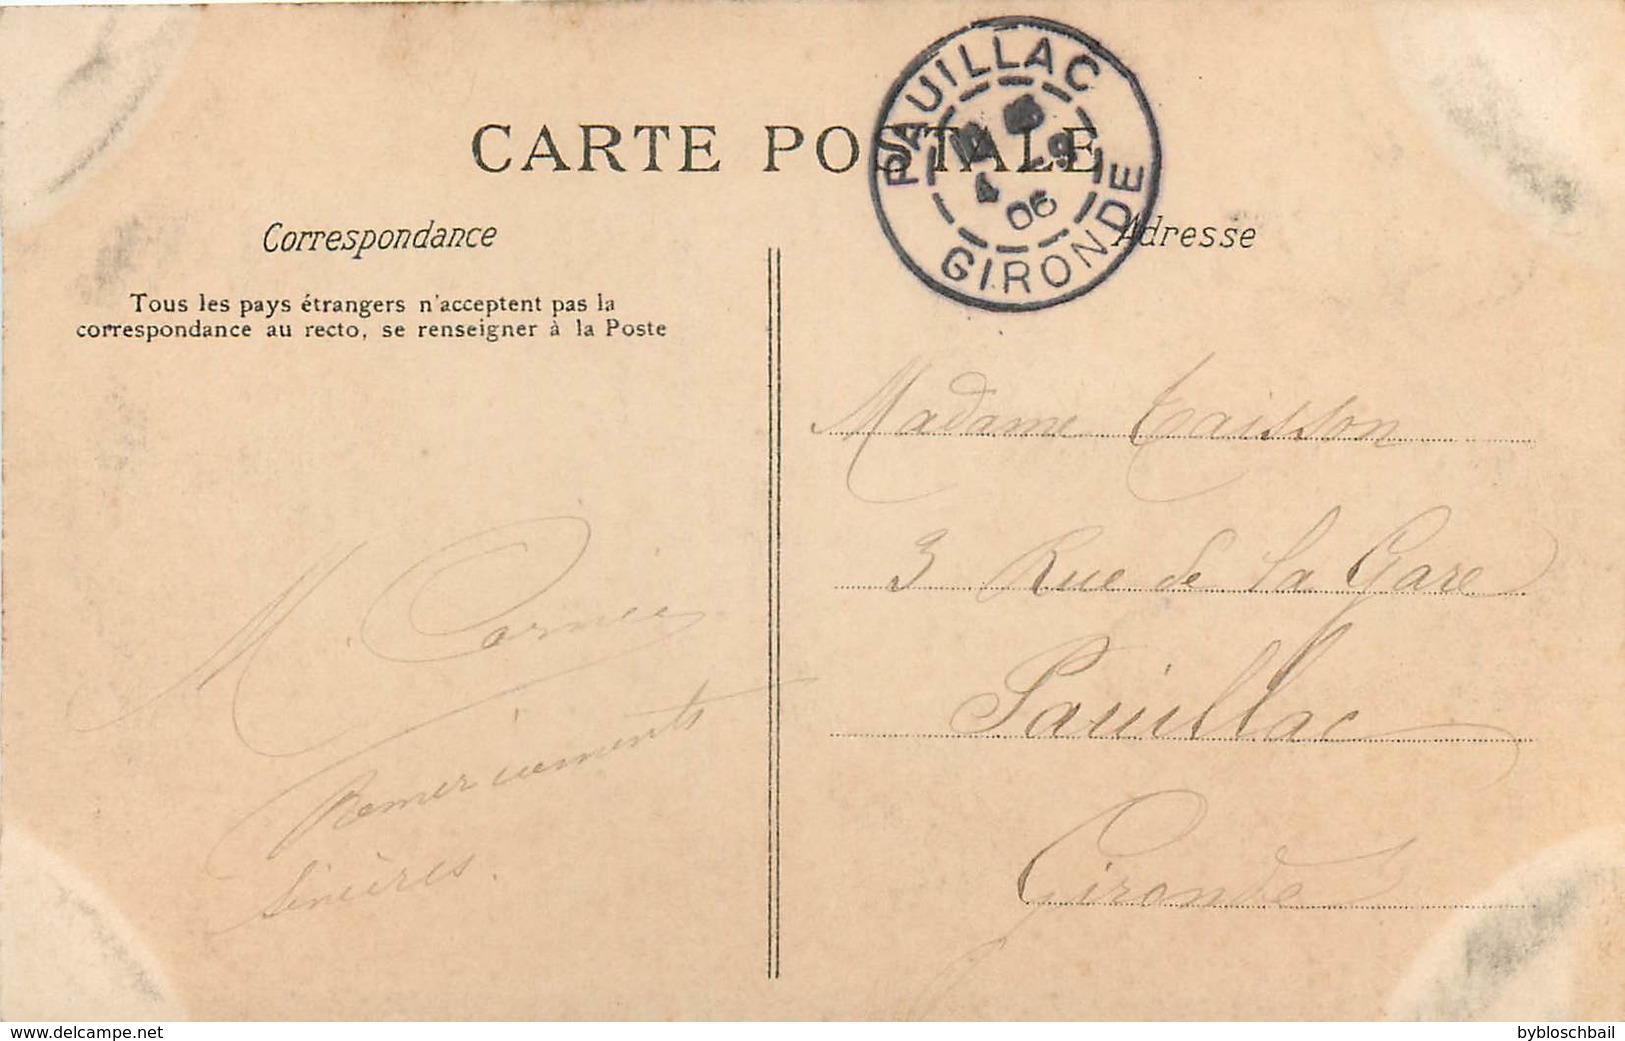 CARTE POSTALE
PAUILLAC
GIRONDE
06
Correspondance
Adresse
Tous les pays étrangers n'acceptent pas la
correspondance au recto, se renseigner à la Poste
Madame Taisson
3 Rue de la Gare
Pauillac
Gironde
M.
Remerciements
Sincères.
www.delcampe.net
bybloschbail